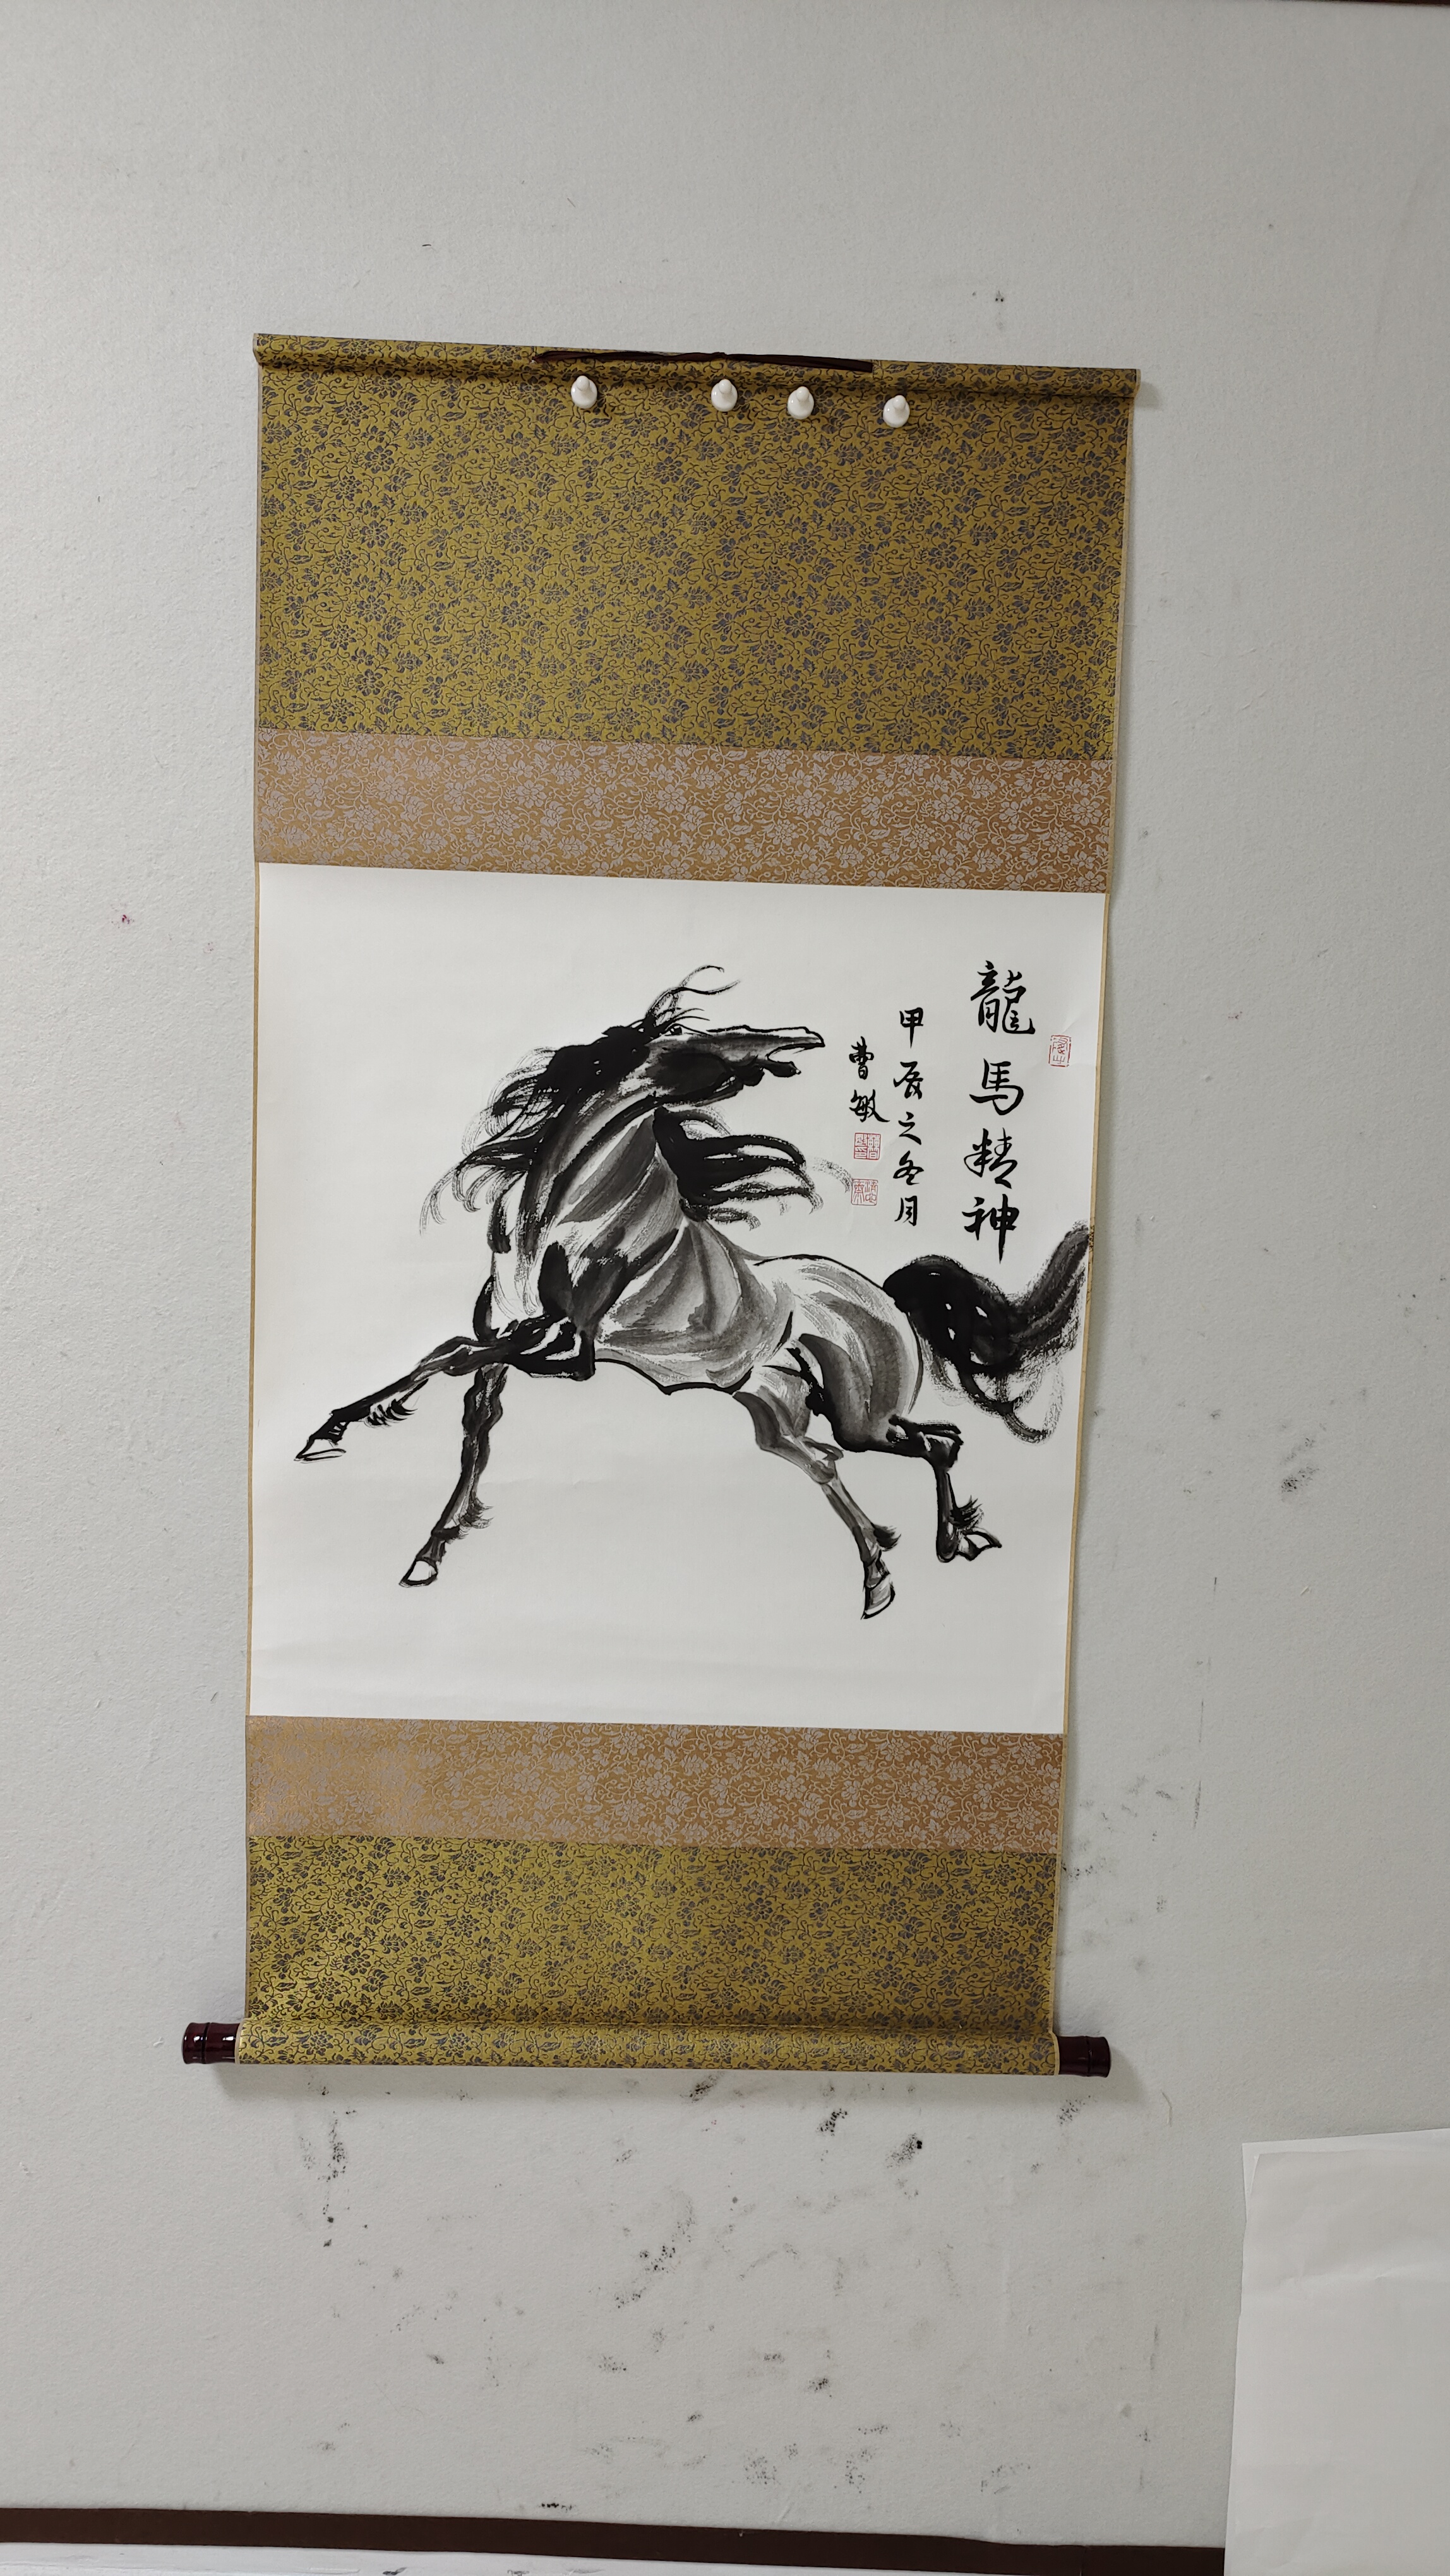 龍馬精神
甲辰之冬月
曹敏